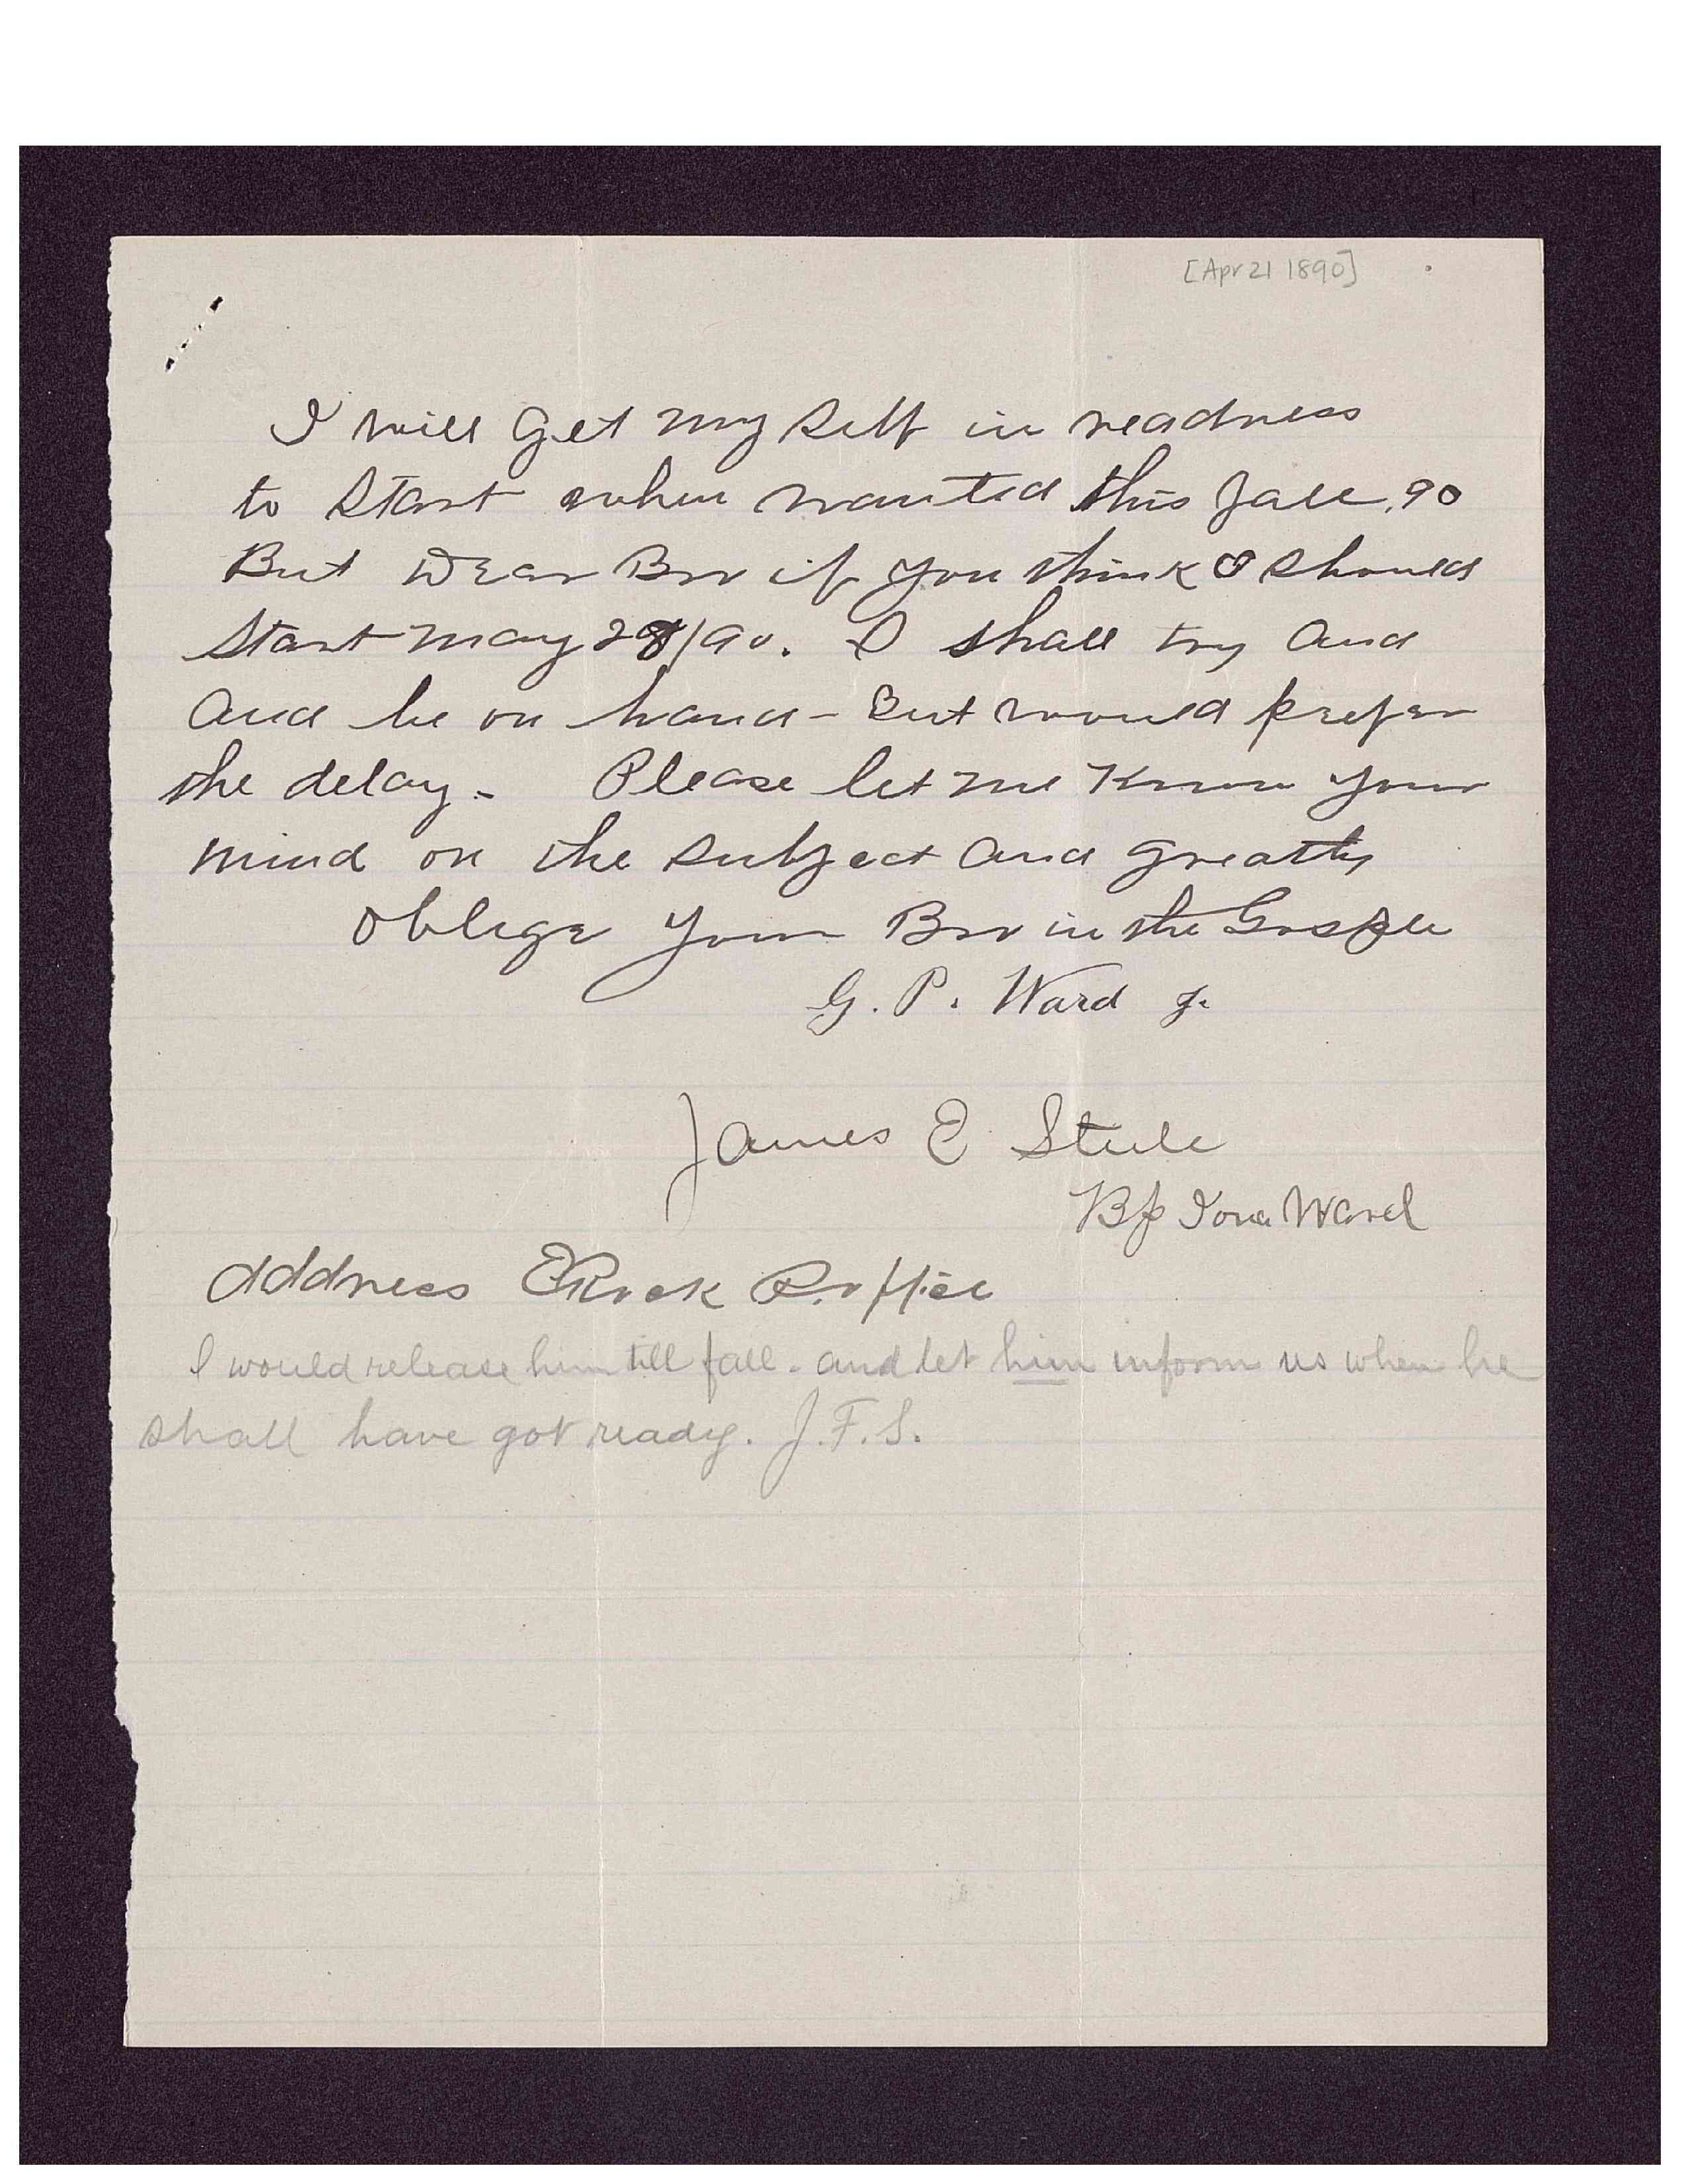 [Apr 21 1890]
I will get my self in readness
to start when wanted this fall, 90
But Dear Bro if you think I should
start may 28/90. I shall try and
and be on hand - But would prefer
the delay - Please let me Know your
mind on the subject and greatly
oblige your Bro in the Gosple
G. P. Ward Jr
James E Steele
Bp Iona Ward
Address E Rock P. office
I would release him till fall - and let him inform us when he
shall have got ready. J.F.S.